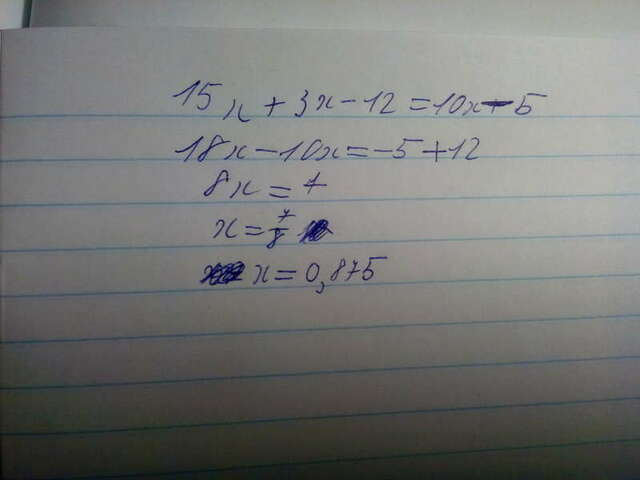 15x + 3x - 12 = 10x - 5
18x - 10x = -5 + 12
8x = 7
x = 7/8
x = 0,875